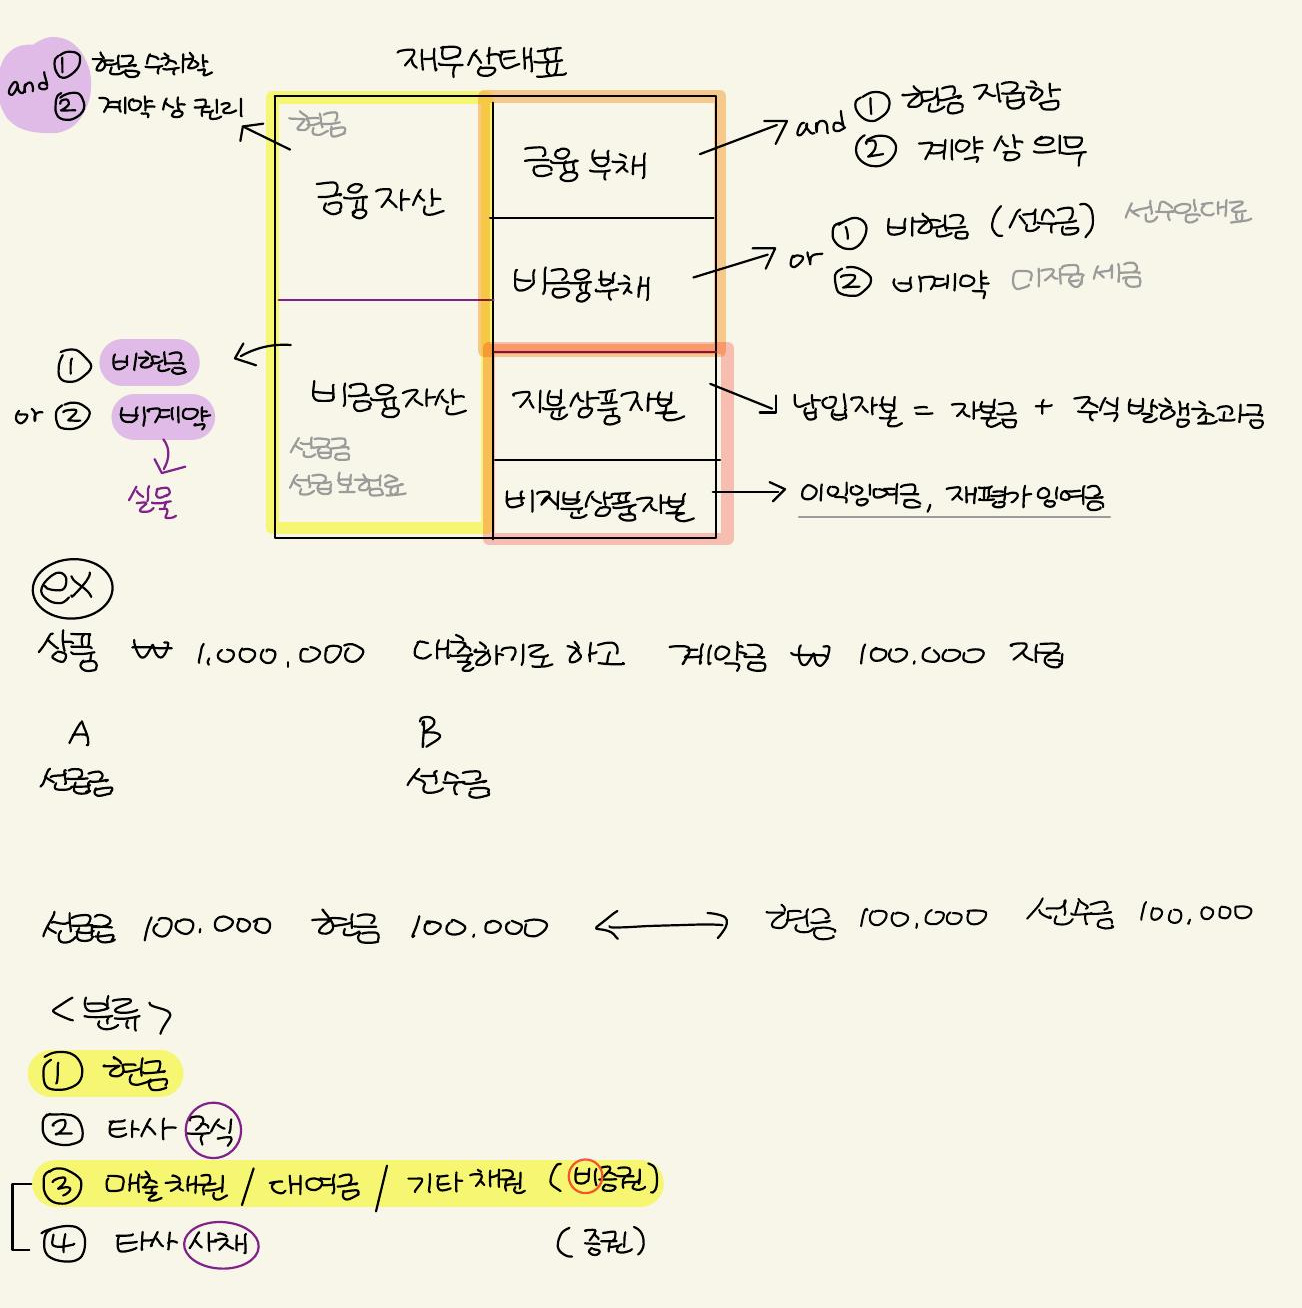 재무상태표
and ① 현금수취할
② 계약 상 권리
현금
금융자산
금융부채
and ① 현금 지급함
② 계약 상 의무
비금융부채
or ① 비현금 (선수금) 선수임대료
② 비계약 미지급 세금
① 비현금
or ② 비계약
실물
비금융자산
선급금
선급보험료
지분상품자본
납입자본 = 자본금 + 주식발행초과금
비지분상품자본
이익잉여금, 재평가잉여금
ex
상품 ₩ 1,000,000 대출하기로 하고 계약금 ₩ 100.000 지급
A B
선급금 선수금
선급금 100.000 현금 100.000 ↔ 현금 100,000 선수금 100,000
<분류>
① 현금
② 타사 주식
③ 매출채권 / 대여금 / 기타채권 (비증권)
④ 타사 사채 (증권)